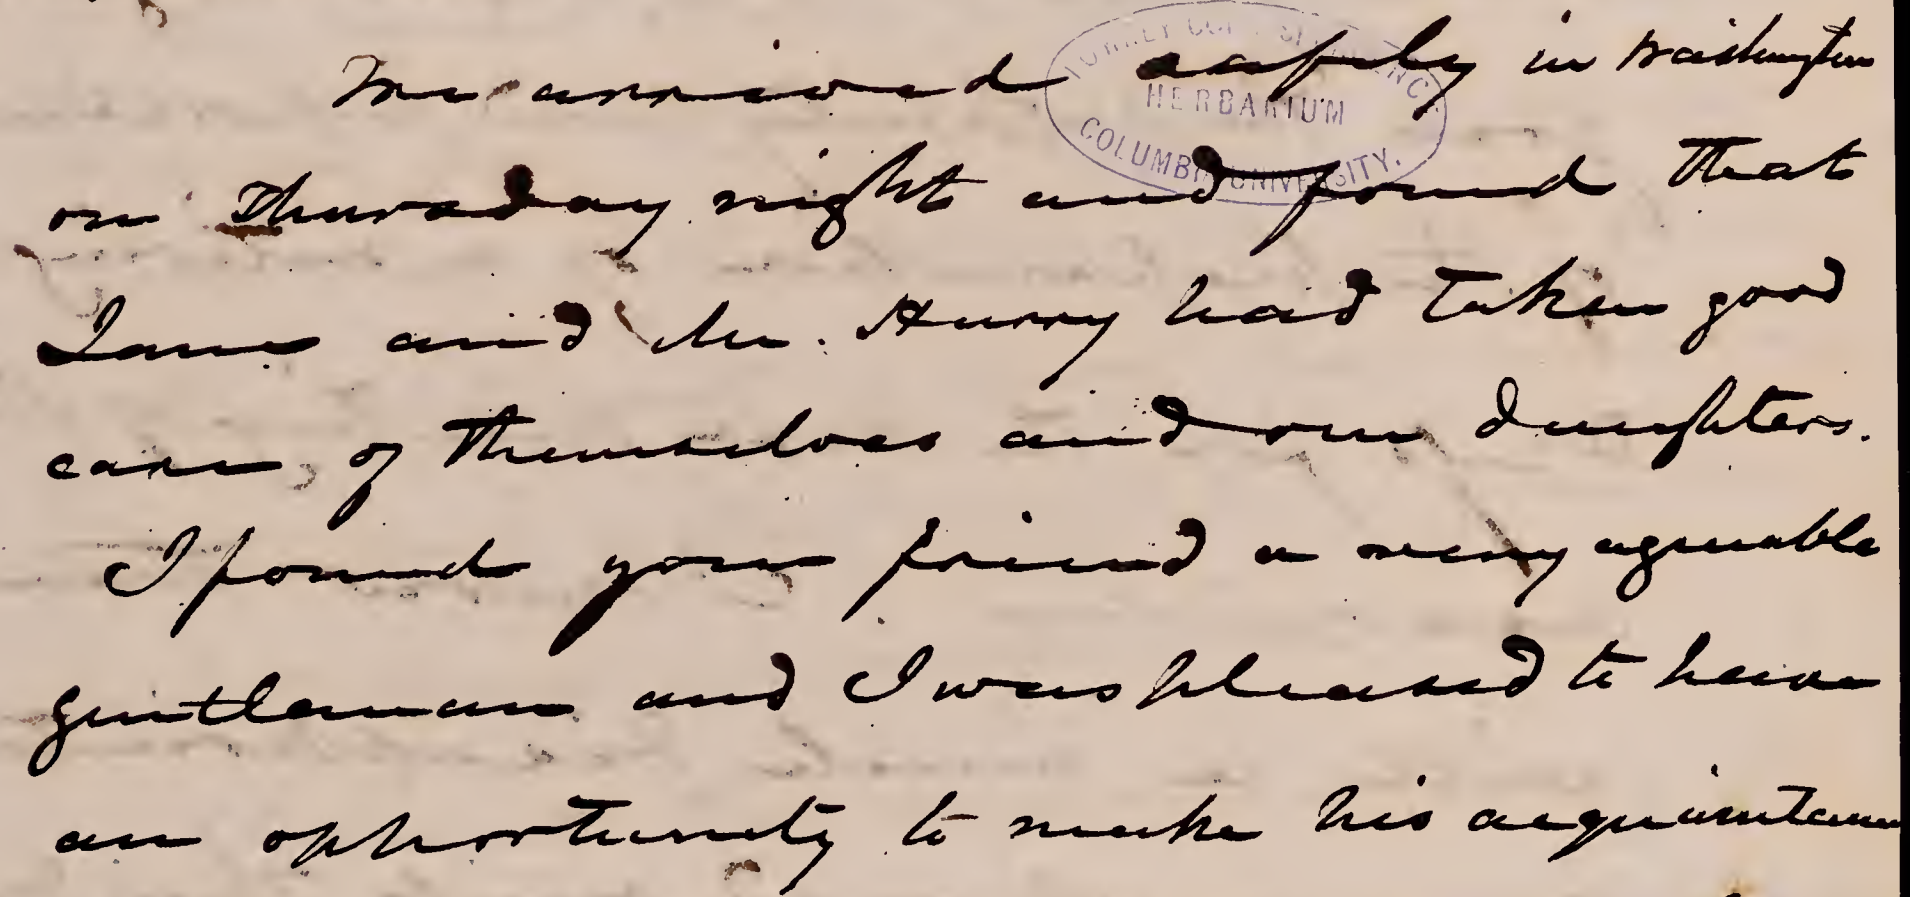 We arrived safely in Washington
on Thursday night and found that
Jane and Mr. Hurry had taken good
care of themselves and our daughters.
I found your friend a very agreeable
gentleman and I was pleased to have
an opportunity to make his acquaintance
TORREY CORRESPONDENCE
HERBARIUM
COLUMBIA UNIVERSITY.